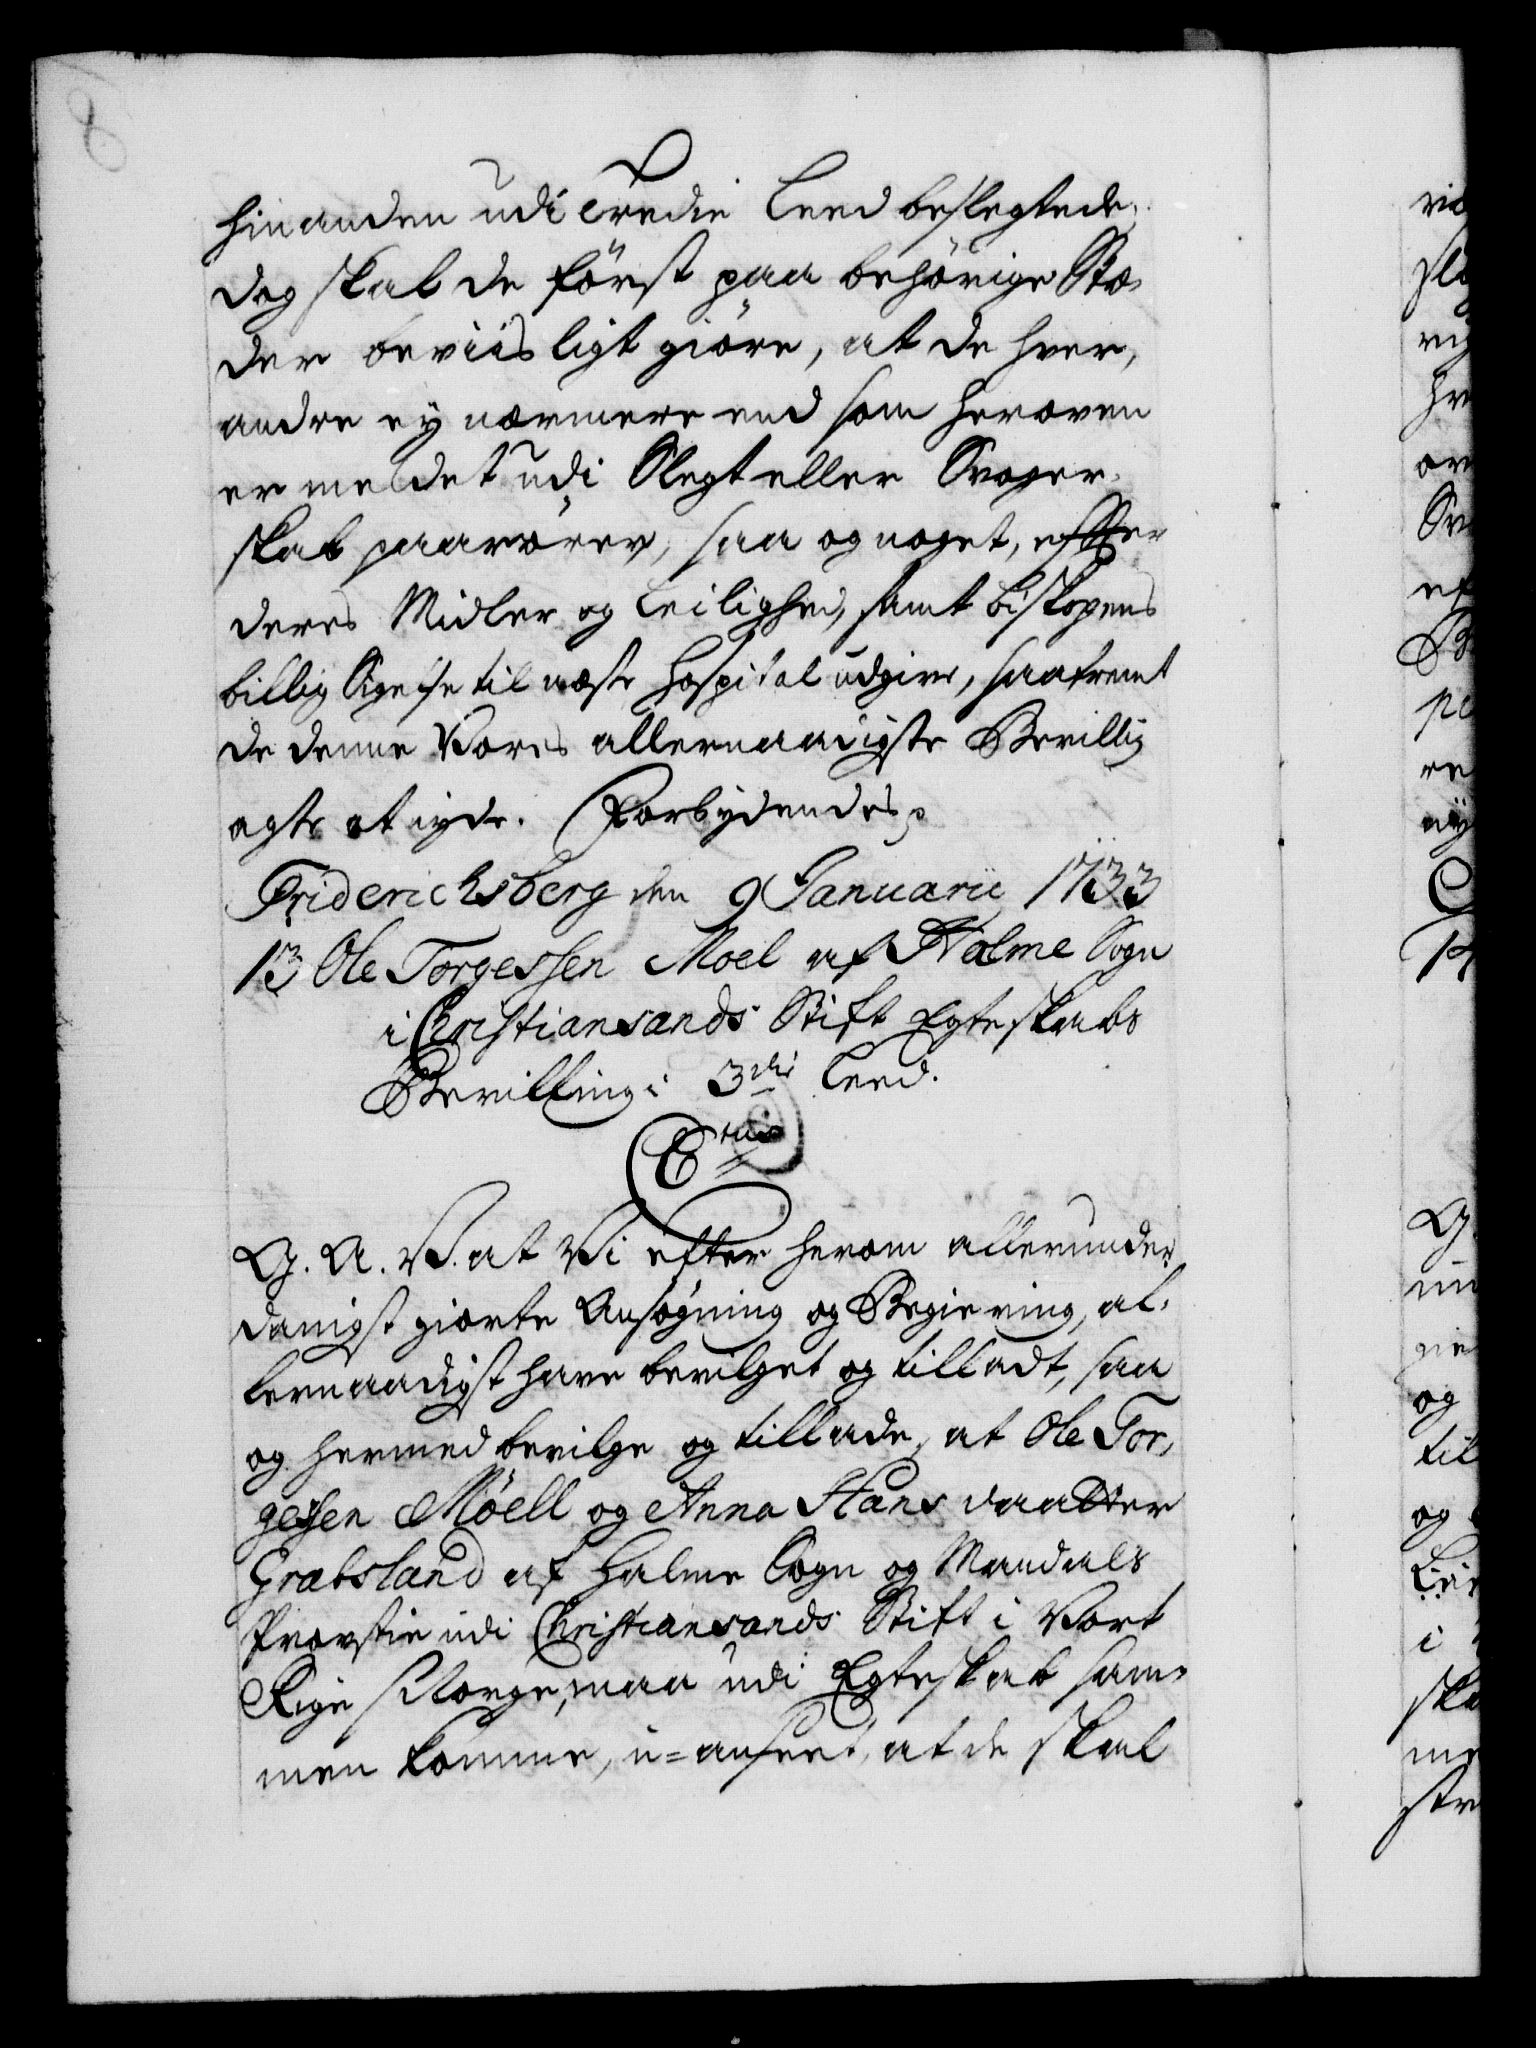 hinanden udi Tredie Leed beslegtede,
dog skal de först paa behörige Stæ-
der beviisligt giöre, at de hver-
andre ey nærmere end som heroven
er meldet udi Slegt eller Svoger-
skab paarörer, saa og noget, efter
deres Midler og Leilighed, samt Biskopens
billig Sigelse til næste Hospital udgive, saafremt
de denne Vores allernaadigste Bevilling
agte at nyde. Forbydendes p
Friderichsberg den 9 Januarii 1733
13 Ole Torgessen Moel af Halme Sogn
i Christiansands Stift Egteskabs
Bevilling i 3die Leed.
C tus
G. A. V. at Vi efter herom allerunder-
danigst giorte Ansøgning og Begiering, al-
lernaadigst have bevilget og tilladt, saa
og hermed bevilge og tillade, at Ole Tor-
gessen Möell og Anna Hans daatter
Grabsland af Halme Sogn og Mandals
Provstie udi Christiansands Stift i Vort
Rige Norge, maa udi Egteskab sam-
men komme, u=anseet, at de skal